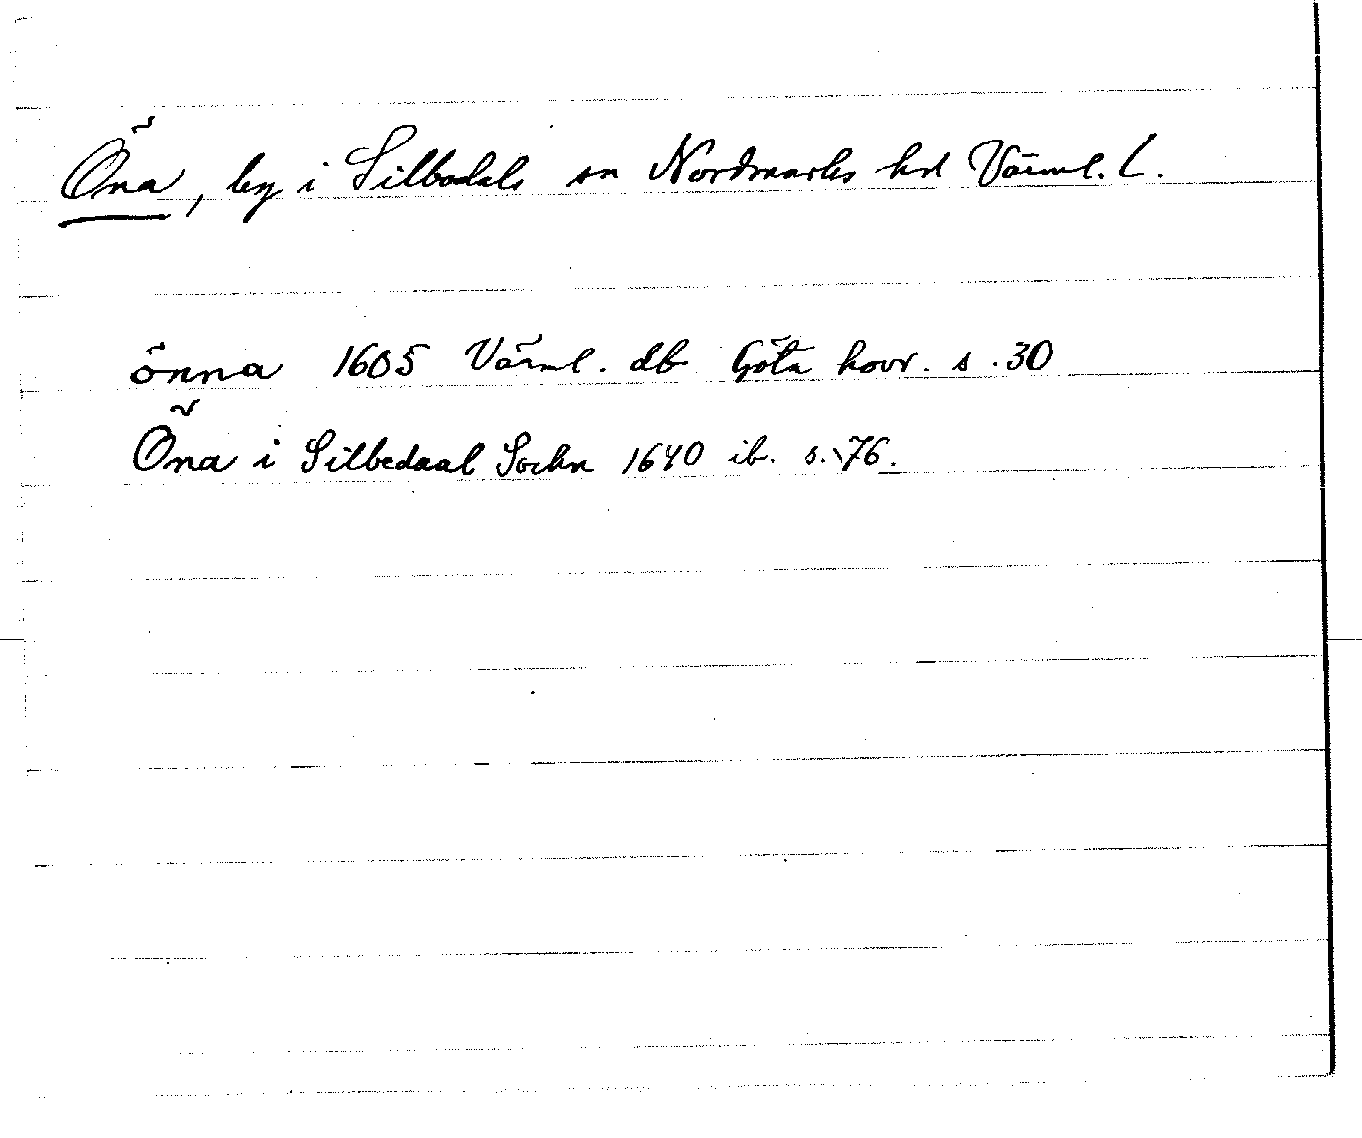 Öna, by i Silbodals sn Nordmarks hd Värml. l.
önna 1605 Värml. db Göta hovr. s. 30
Öna i Silbedaal Sochn 1640 ib. s. 76.